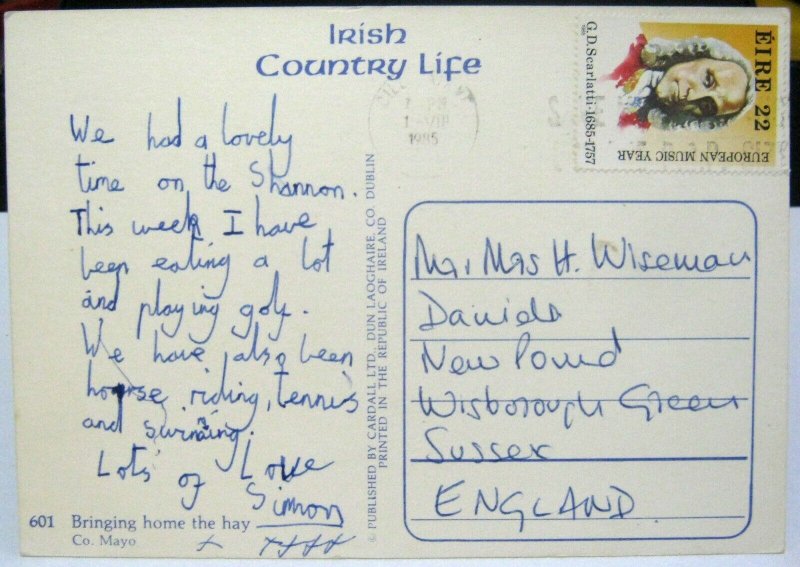 Irish
Country Life
We had a lovely
time on the Shannon.
This week I have
been eating a lot
and playing golf.
We have also been
horse riding, tennis
and swimming.
Lots of Love
Simon
601 Bringing home the hay
Co. Mayo
© PUBLISHED BY CARDALL LTD. DUN LAOGHAIRE, CO. DUBLIN
PRINTED IN THE REPUBLIC OF IRELAND
1985
G.D. Scarlatti · 1685-1757
ÉIRE 22
EUROPEAN MUSIC YEAR
Mr, Mrs H. Wiseman
Daniels
New Pound
Wisborough Green
Sussex
ENGLAND